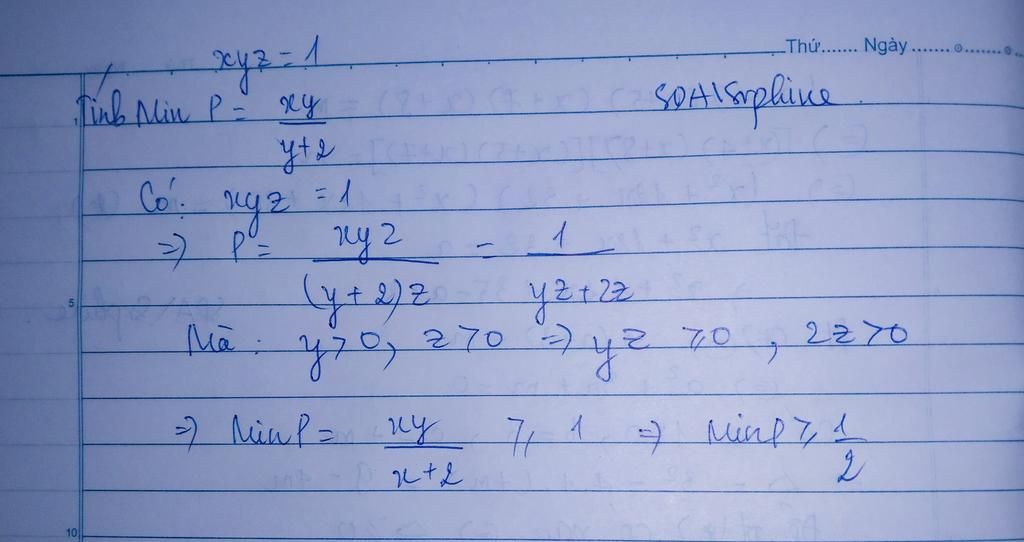 Thứ....... Ngày .......
xyz = 1
Tính Min P = xy / y+2
Có: xyz = 1
=> P = xyz / (y+2)z = 1 / yz+2z
5
Mà: y>0, z>0 => yz ⩾0, 2z>0
=> Min P = xy / x+2 ⩾ 1 => MinP ⩾ 1/2
10